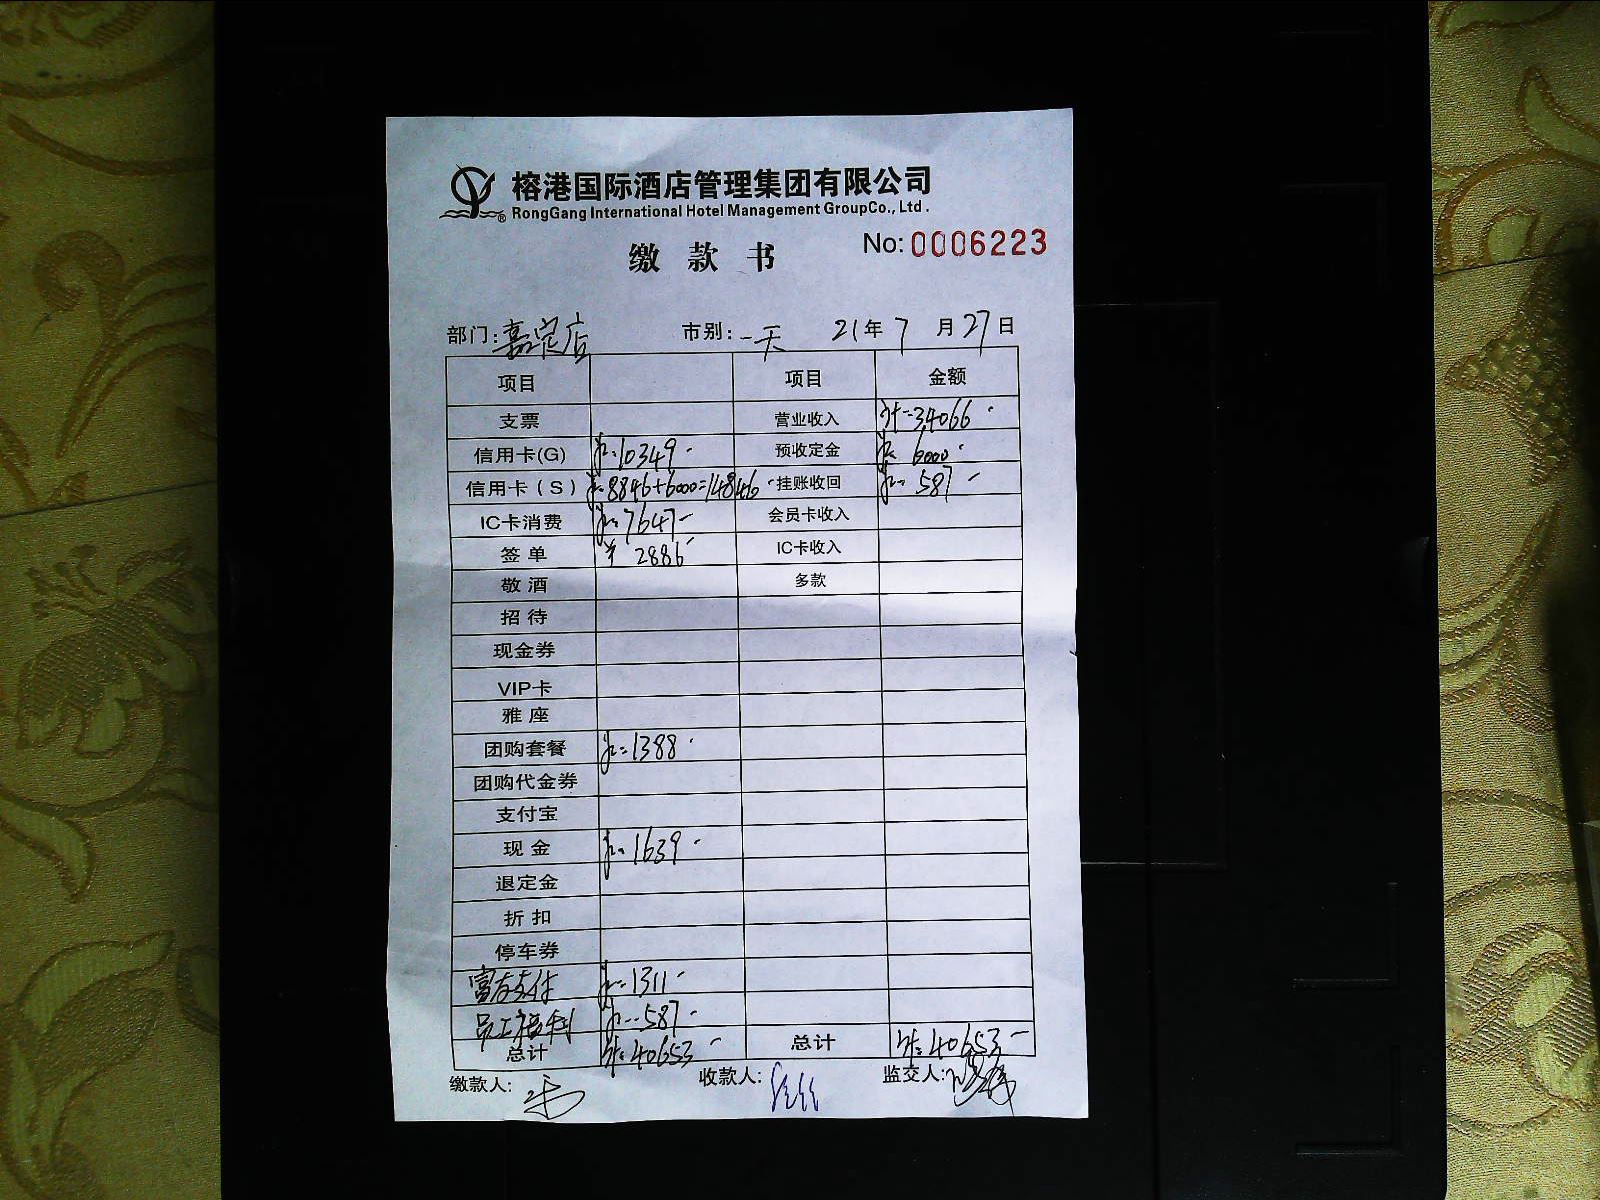 榕港国际酒店管理集团有限公司
® RongGang International Hotel Management GroupCo., Ltd.
缴款书 No: 0006223
部门: 嘉定店 市别: 一天 21年 7月 27日
项目 项目 金额
支票 营业收入 34066
信用卡(G) 10349 预收定金 6000
信用卡(S) 8846+6000=14846 挂账收回 587
IC卡消费 7647 会员卡收入
签单 ¥ 2886 IC卡收入
敬酒 多款
招待
现金券
VIP卡
雅座
团购套餐 1388
团购代金券
支付宝
现金 1639
退定金
折扣
停车券
富友支付 1311
员工福利 587
总计 40653 总计 40653
缴款人: 收款人: 监交人: